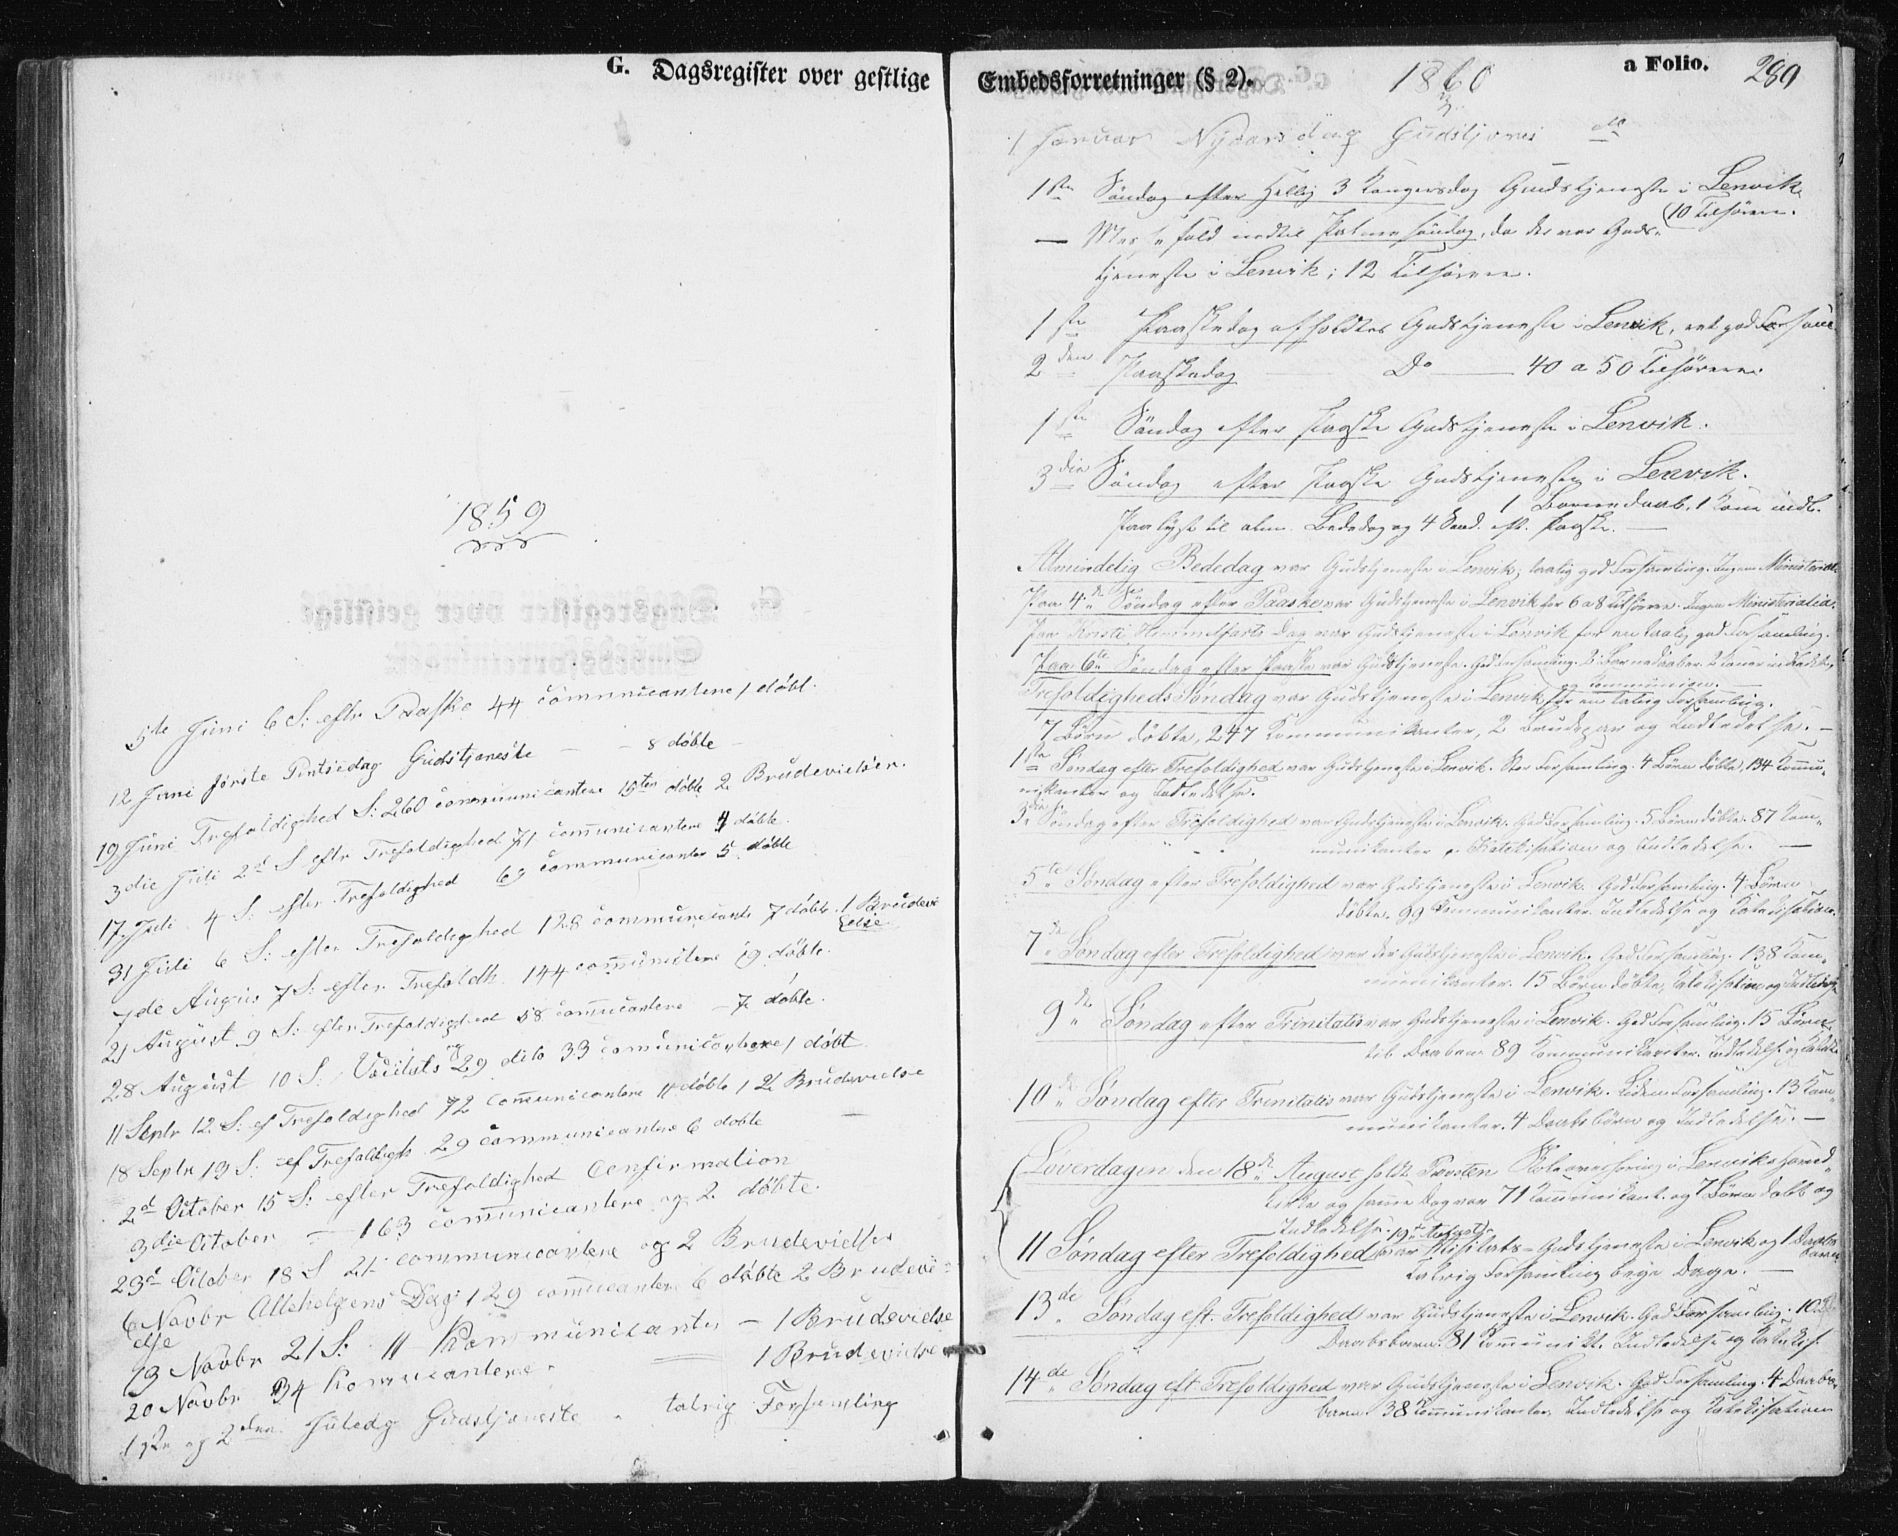 G. Dagsregister over gestlige
1859
5te Juni 6 S: eftr Paaske 44 communicantere 1 døbt.
12 Juni første Pintsedag Gudstjeneste — 8 døbte —
19 Juni Trefoldighed S: 260 communicantere 15ten døbte 2 Brudevielser.
3die Juli 2d S eftr Trefoldighed 71 communicantere 4 døbte.
17 Juli 4 S: efter Trefoldighed 69 communicanter 5 døbte
31 Juli 6 S: efter Trefoldighed 128 communicante 7 døbte. 1 Brudevi
else
7de Augus 7 S: efter Trefoldh. 144 communictere 19 døbte.
21 August 9 S: efter Trefoldighed 58 comucantere — 7 døbte.
28 August 10 S: Visitats og 29 dito 33 comunicantere 1 døbt
11 Septr 12 S: ef Trefoldighed 72 communicantere 11 døbte 2 Brudevielse
18 Septr 13 S: ef Trefoldigh 29 communicantere 6 døbte —
2d October 15 S: efter Trefoldighed Confirmation
3die October — 163 communicantere og 2 døbte.
23d October 18 S 21 communicantere og 2 Brudevielser
6 Novbr Allehelgens Dag 129 comucantere 6 døbte 2 Brudevi=
else
13 Novbr 21 S: 11 Kommunicanter — 1 Brudevielse
20 Novbr 34 Komucantere — 1 Brudevielse
1ste og 2den Juledg Gudstjeneste talrig Forsamling
Embedsforretninger (§ 2). 1860 a Folio. 289
1 Januar Nytaarsdag Gudstjenes
1ste Søndag efter Hellig 3 Kongersdag Gudstjeneste i Lenvik
(10 Tilhørere.
— Messefald indtil Palmesøndag, da der var Guds-
tjeneste i Lenvik; 12 Tilhørere.
1ste Paaskedag afholdtes Gudstjeneste i Lenvik, ret god Forsaml
2den Paaskedag — Do — 40 a 50 Tilhørere.
1ste Søndag efter Paaske Gudstjeneste i Lenvik.
3die Søndag efter Paaske Gudstjeneste i Lenvik.
1 Barnedaab. 1 Kone indl.
Paalyst til alm. Bededag og 4 Sønd. eft. Paaske. —
Almindelig Bededag var Gudstjeneste i Lenvik; taalig god Forsamling. Ingen Ministerial.
Paa 4de Søndag efter Paaske var Gudstjeneste i Lenvik for 6 a 8 Tilhørere. Ingen Ministerialia.
Paa Kristi Himmelfarts Dag var Gudstjeneste i Lenvik for en taalig god Forsamling.
Paa 6te Søndag efter Paaske var Gudstjeneste. God Forsamling. 2 Barnedaaber. 2 Koner indledte,
og Kommunion. —
Trefoldigheds Søndag var Gudstjeneste i Lenvik for en talrig Forsamling.
7 Børn døbte, 247 Kommunikanter, 2 Brudepar og Indledelse. —
1ste Søndag efter Trefoldighed var Gudstjeneste i Lenvik. Stor Forsamling. 4 Børn døbte, 134 Kommu-
nikanter og Indledelse.
3die Søndag efter Trefoldighed var Gudstjeneste i Lenvik. God Forsamling. 5 Børn døbte. 87 Kom-
munikanter. Katekisation og Indledelse. —
5te Søndag efter Trefoldighed var Gudstjeneste i Lenvik. God Forsamling. 4 Børn
døbte. 99 Kommunikanter. Indledelse og Katekisation.
7de Søndag efter Trefoldighed var der Gudstjeneste i Lenvik. God Forsamling. 138 Kom-
munikanter. 15 Børn døbte, Katekisation og Indledelse
9de Søndag efter Trinitatis var Gudstjeneste i Lenvik. God Forsamling. 15 Børn
til Daaben. 89 Kommunikanter. Indledelse og Katek
10de Søndag efter Trinitatis var Gudstjeneste i Lenvik. Liden Forsamling. 13 Kom-
munikanter. 4 Daabsbørn og Indledelse. —
Løverdagen den 18de August holdt Provsten Skoleoverhøring i Lenviks Hoved-
kirke og samme Dag var 71 Kommunikant. og 7 Børn døbt og
Indledelse. 19de August
11 Søndag efter Trefoldighed var Visitats-Gudstjeneste i Lenvik og 1 Daabs
barn.
Talrig Forsamling begge Dage. —
13de Søndag eft. Trefoldighed var Gudstjeneste i Lenvik. God Forsamling. 10
Daabsbørn. 81 Kommunikt. Indledelse og Katekis.
14de Søndag eft Trefoldighed var Gudstjeneste i Lenvik. God Forsamling. 4 Daabs
børn. 38 Kommunikanter. Indledelse og Katekisation